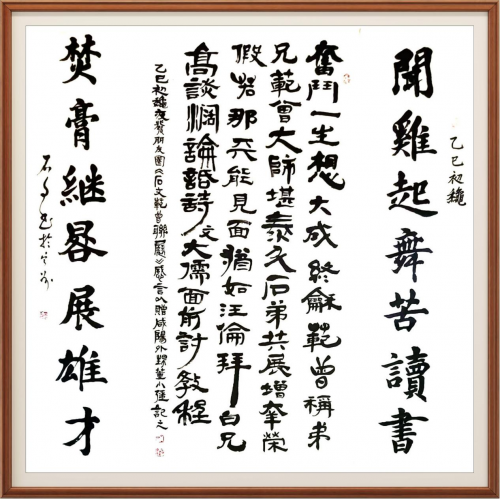 聞雞起舞苦讀書
乙巳初龝
奮鬥一生想大成終龢範曾稱弟
兄範曾大師堪泰斗石弟共展增奎榮
假若那天能見面猶如汪倫拜白兄
高談闊論話詩文大儒面前討教程
乙巳初龝夜朋友圈《石文範曾聯展》感言以贈咸陽外甥董小記之
焚膏継晷展雄才
石文